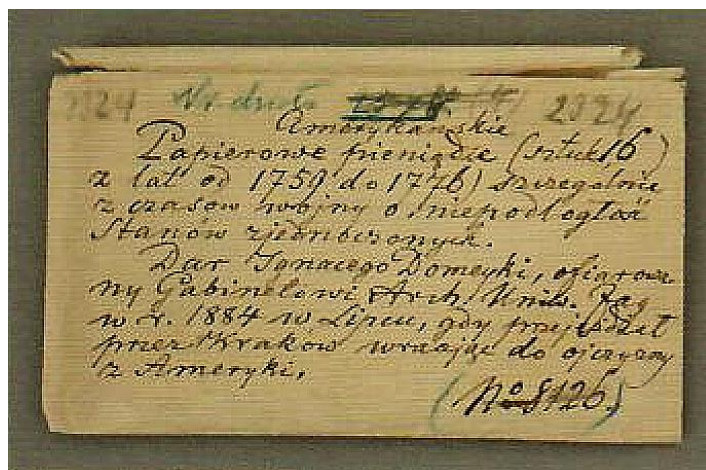 2024 Nr. druk 2024
Amerykańskie
Papierowe pieniądze (sztuk 16)
z lat od 1759 do 1776) szczególnie
z czasów wojny o niepodległość
Stanów zjednoczonych.
Dar Ignacego Domeyki, ofiarowa
ny Gabinetowi Arch. Uniw. Jag
w r. 1884 w Lipcu, gdy przyjeżdżał
przez Kraków wracając do ojczyzny
z Ameryki.
(No 8126)